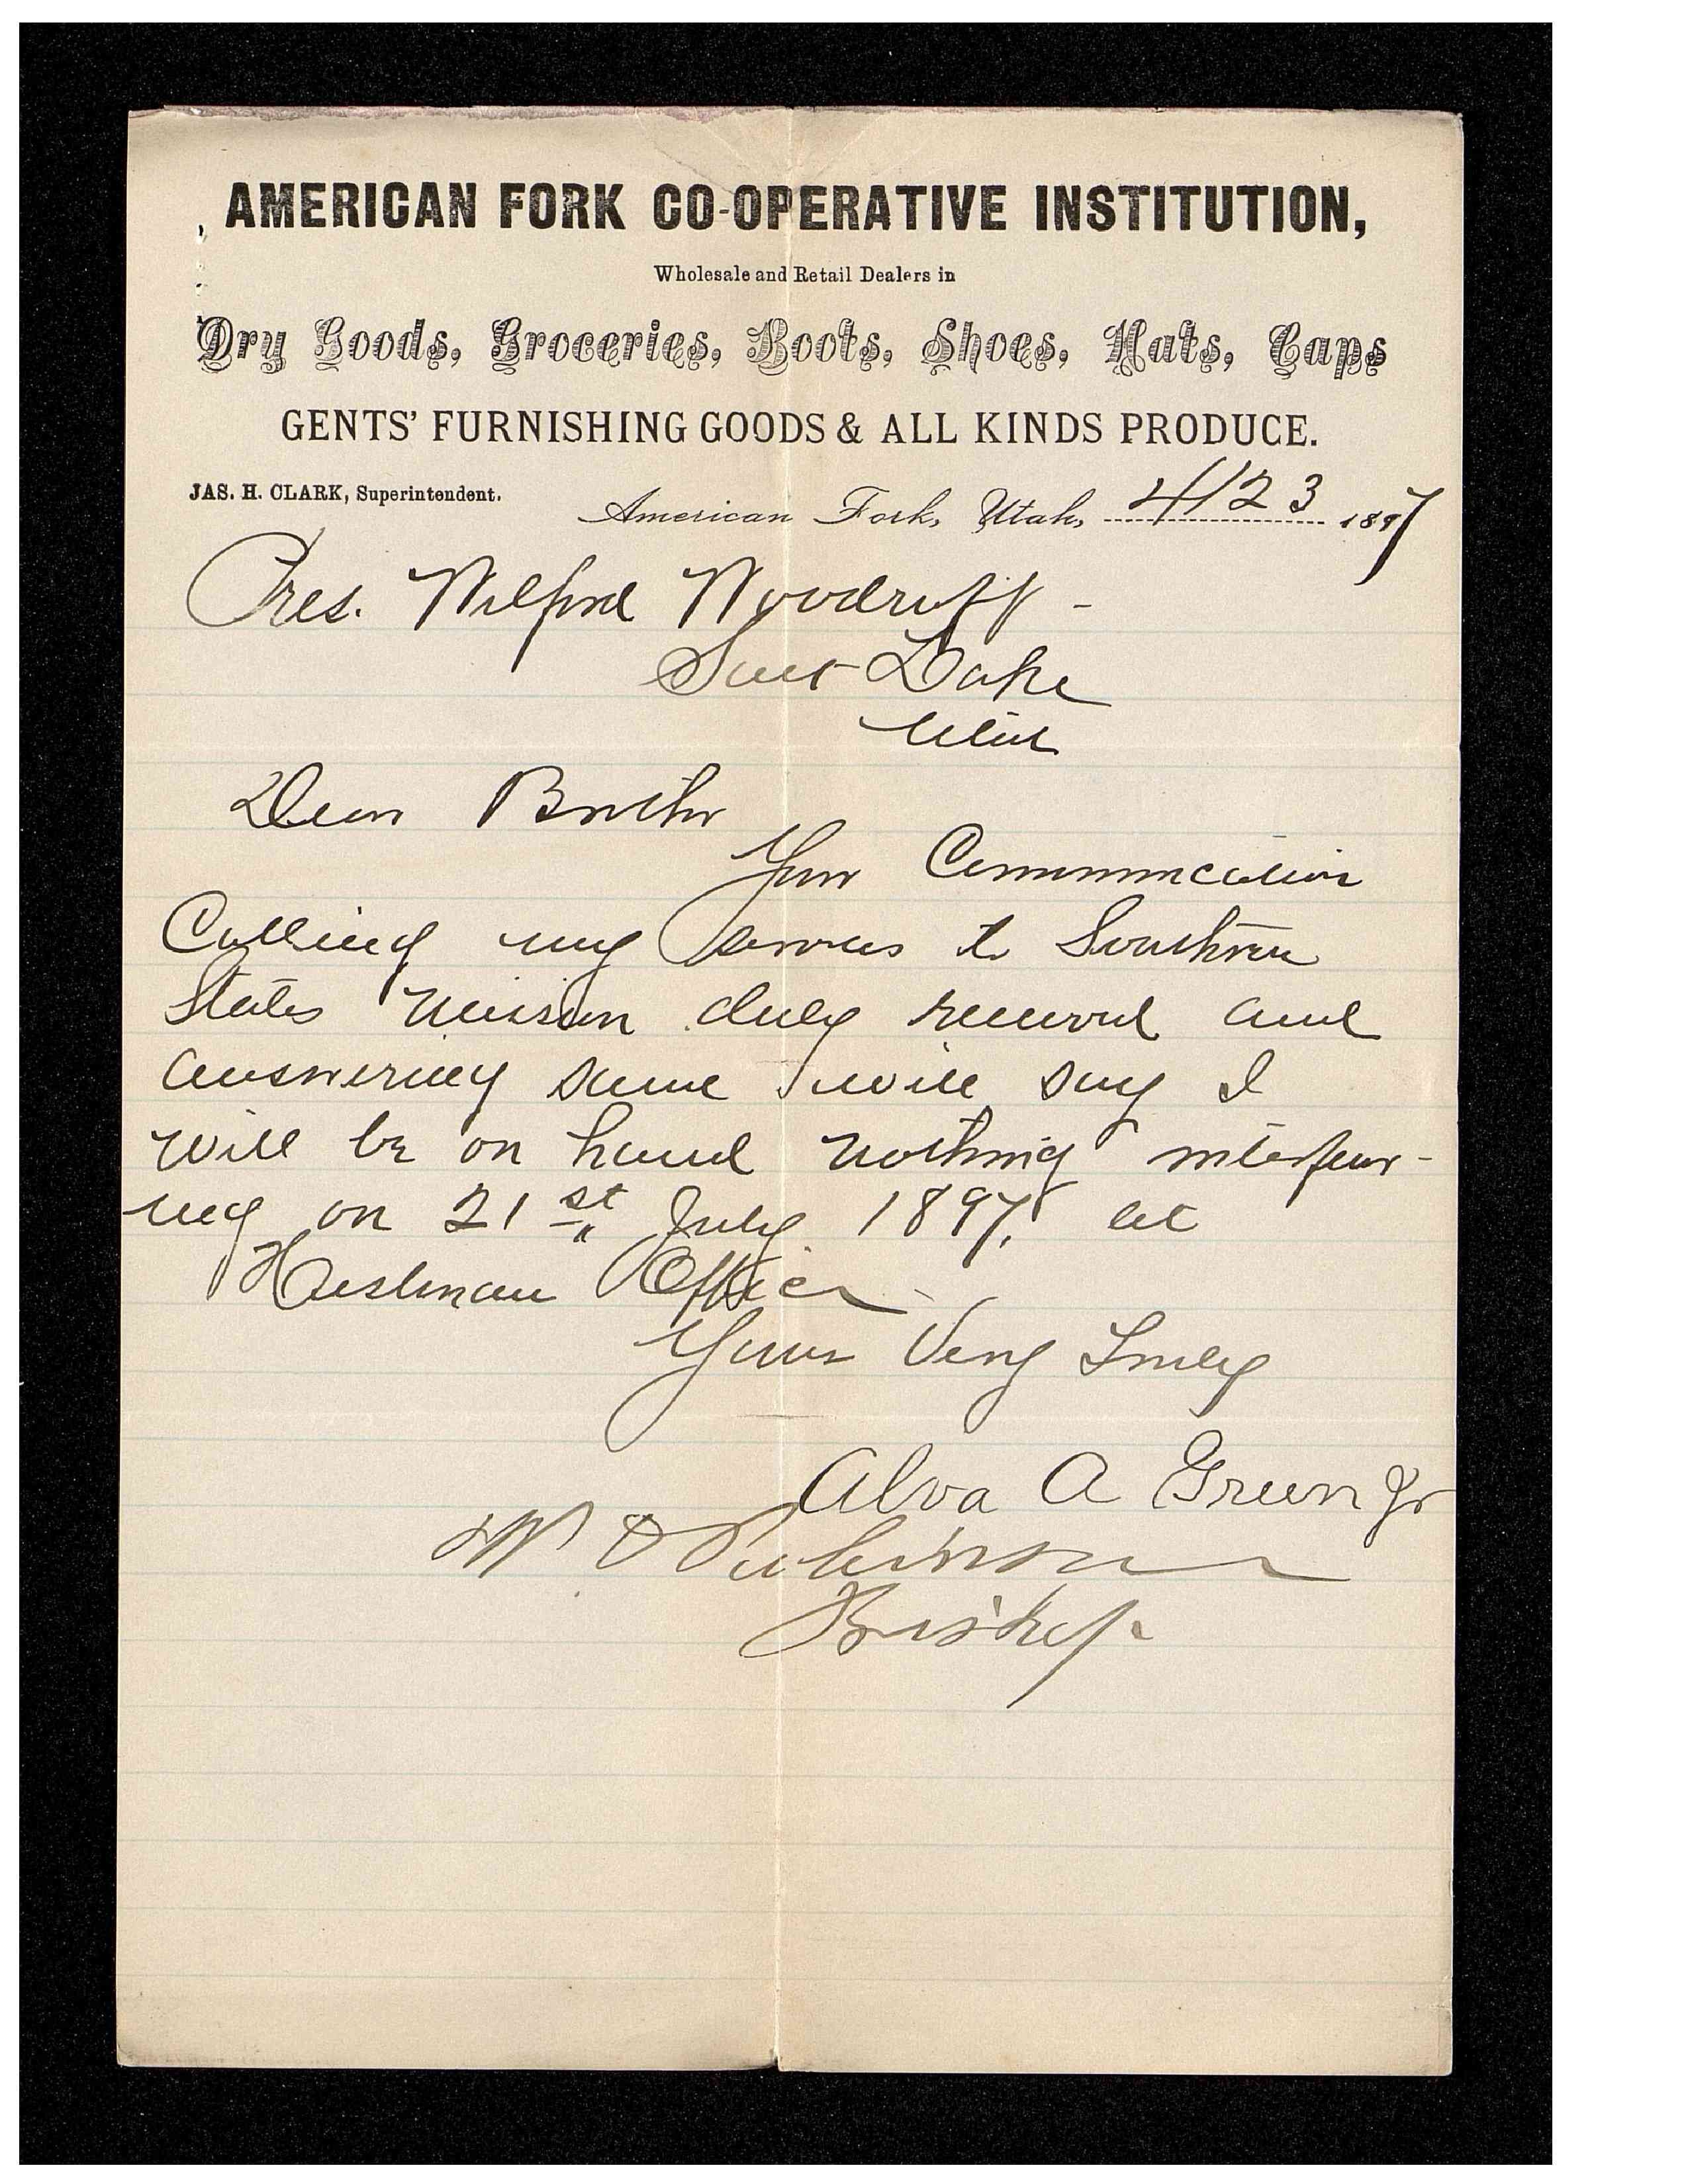 AMERICAN FORK CO-OPERATIVE INSTITUTION,
Wholesale and Retail Dealers in
Dry Goods, Groceries, Boots, Shoes, Hats, Caps
GENTS' FURNISHING GOODS & ALL KINDS PRODUCE.
JAS. H. CLARK, Superintendent.
American Fork, Utah, 4/23 1897
Pres. Wilford Woodruff -
Salt Lake
Utah
Dear Brother
Your Communication
Calling my services to Southern
States Mission duly received and
answering same will say I
will be on hand nothing interfear-
ing on 21st July 1897, at
Historian Office
Yours Very Truly
Alva A Green Jr
W D Robinson
Bishop